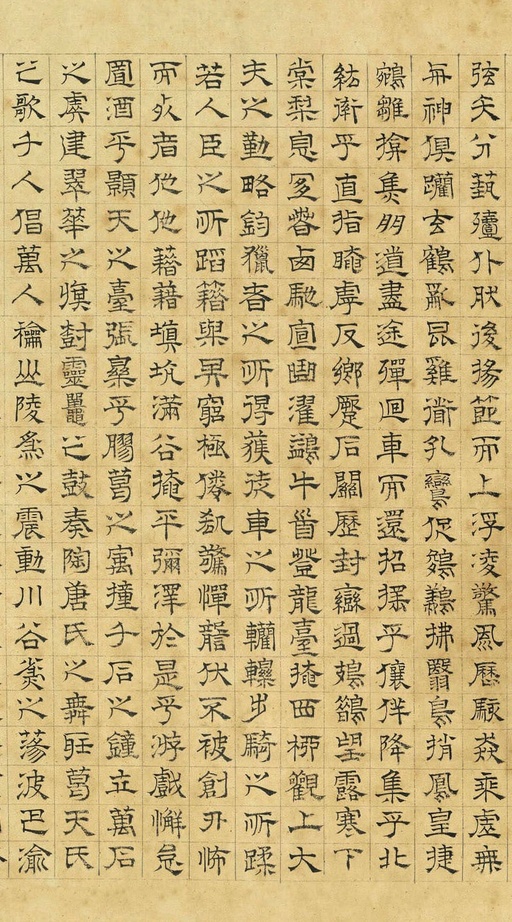 弦矢分蓺殪仆肰後揚節而上浮凌驚風歷駭猋乘虛無
與神俱躪玄鶴亂昆雞遒孔鸞促鵕鸃拂翳鳥捎鳳皇捷
鵷雛揜焦朙道盡途殫迴車而還招搖乎儴佯降集乎北
紘率乎直指晻虖反鄉蹷石關歷封巒過鳷鵲望露寒下
棠梨息宜春西馳宣曲濯鷁牛首登龍臺掩細柳觀士大
夫之勤略鈞獵者之所得獲徒車之所轥轢步騎之所蹂
若人臣之所蹈籍與其窮極倦𠫷驚憚讋伏不被創刃怖
而死者他他藉藉填坑滿谷掩平彌澤於是乎游戲懈怠
置酒乎顥天之臺張樂乎膠葛之㝢撞千石之鐘立萬石
之虡建翠華之旗樹靈鼉之鼓奏陶唐氏之舞聽葛天氏
之歌千人倡萬人龢山陵為之震動川谷為之蕩波巴渝